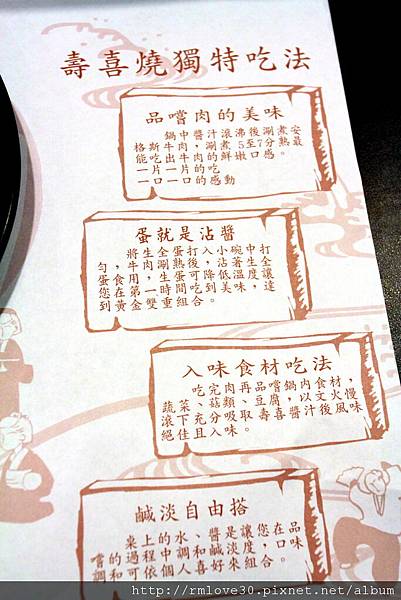 壽喜燒獨特吃法
品嚐肉的美味
鍋中醬汁滾沸後涮煮安
格斯牛肉，涮煮5至7分熟最
能吃出牛肉的鮮嫩口感。
一片一片的吃
一口一口的感動
蛋就是沾醬
將生全蛋打入小碗中打
勻，牛肉涮熟後，沾著生全
蛋食用，生蛋可降低溫度讓
您在第一時間吃到美味，達
到黃金雙重組合。
入味食材吃法
吃完肉再品嚐鍋內食材，
蔬菜、菇類、豆腐，以文火慢
滾下充分吸取壽喜醬汁後風味
絕佳且入味。
鹹淡自由搭
桌上的水、醬是讓您在品
嚐的過程中調和鹹淡度，口味
調和可依個人喜好來組合。
http://rmlove30.pixnet.net/album